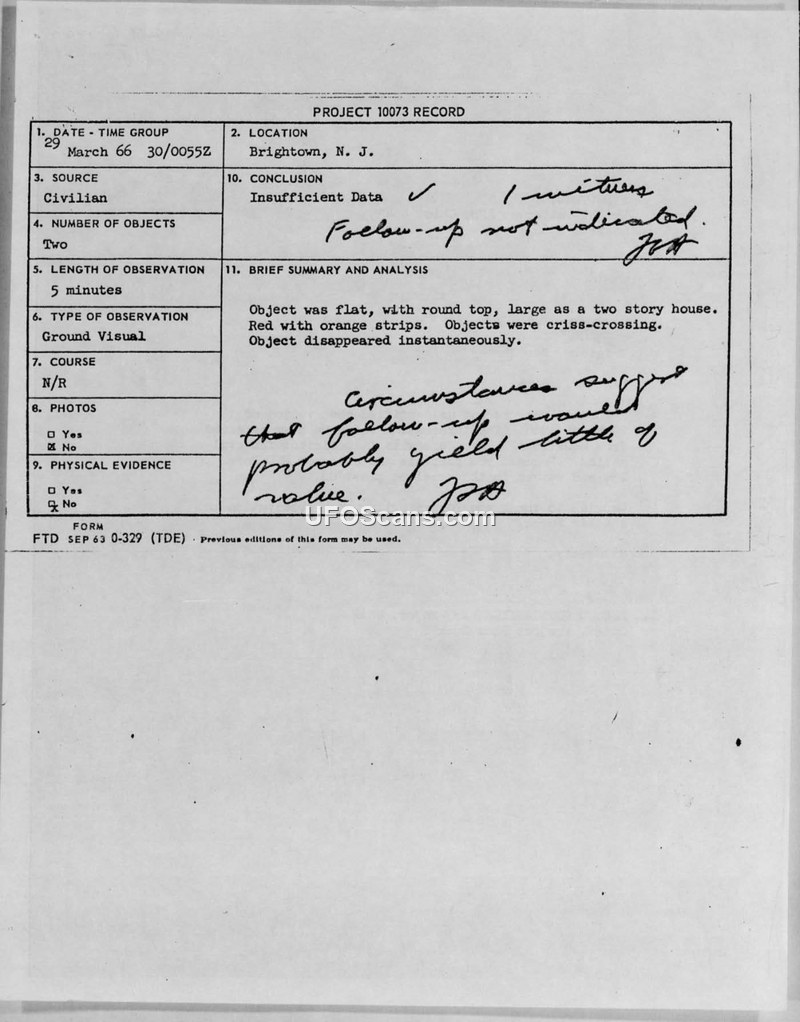 PROJECT 10073 RECORD
1. DATE - TIME GROUP
29 March 66 30/0055Z
2. LOCATION
Brightown, N. J.
3. SOURCE
Civilian
10. CONCLUSION
Insufficient Data ✓ 1 witness
Follow-up not indicated.
JAH
4. NUMBER OF OBJECTS
Two
5. LENGTH OF OBSERVATION
5 minutes
11. BRIEF SUMMARY AND ANALYSIS
Object was flat, with round top, large as a two story house.
Red with orange strips. Objects were criss-crossing.
Object disappeared instantaneously.
Circumstances suggest
that follow-up would
probably yield little of
value. JAH
6. TYPE OF OBSERVATION
Ground Visual
7. COURSE
N/R
8. PHOTOS
□ Yes
☒ No
9. PHYSICAL EVIDENCE
□ Yes
☒ No
UFOScans.com
FORM
FTD SEP 63 0-329 (TDE) Previous editions of this form may be used.